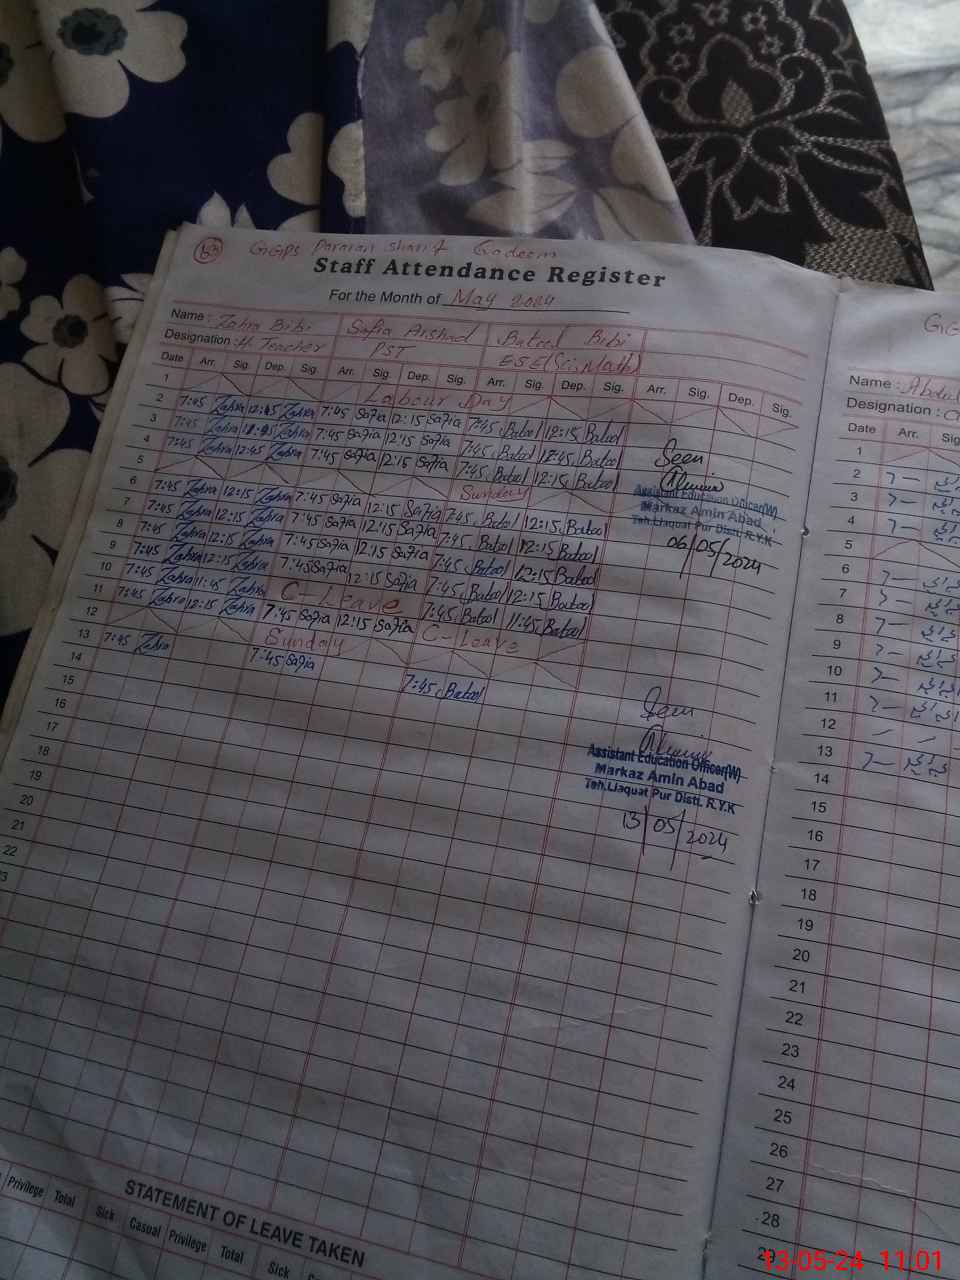 63 GGPS Pararan Sharif Qadeem
Staff Attendance Register
For the Month of May 2024
Name: Zahra Bibi Safia Arshad Batool Bibi
Designation: H. Teacher PST ESE(Sci,Math)
Date Arr. Sig. Dep. Sig. Arr. Sig. Dep. Sig. Arr. Sig. Dep. Sig. Arr. Sig. Dep. Sig.
1 Labour Day
2 7:45 Zahra 12:15 Zahra 7:45 Safia 12:15 Safia 7:45 Batool 12:15 Batool
3 7:45 Zahra Zahra 7:45 Safia 12:15 Safia 7:45 Batool 12:45 Batool
4 7:45 Zahra 12:45 Zahra 7:45 Safia 12:15 Safia 7:45 Batool 12:15 Batool
5 Sunday
6 7:45 Zahra 12:15 Zahra 7:45 Safia 12:15 Safia 7:45 Batool 12:15 Batool
7 7:45 Zahra 12:15 Zahra 7:45 Safia 12:15 Safia 7:45 Batool 12:15 Batool
8 7:45 Zahra 12:15 Zahra 7:45 Safia 12:15 Safia 7:45 Batool 12:15 Batool
9 7:45 Zahra 12:15 Zahra 7:45 Safia 12:15 Safia 7:45 Batool 12:15 Batool
10 7:45 Zahra 11:45 Zahra C-Leave 7:45 Batool 11:45 Batool
11 7:45 Zahra 12:15 Zahra 7:45 Safia 12:15 Safia C-Leave
12 Sunday
13 7:45 Zahra 7:45 Safia 7:45 Batool
14
15
16
17
18
19
20
21
22
23
Seen
Assistant Education Officer(W)
Markaz Amin Abad
Teh.Liaquat Pur Distt. R.Y.K
06/05/2024
Seen
Assistant Education Officer(W)
Markaz Amin Abad
Teh.Liaquat Pur Distt. R.Y.K
13/05/2024
STATEMENT OF LEAVE TAKEN
Privilege Total Sick Casual Privilege Total Sick
Name:
Designation:
Date Arr.
1
2
3
4
5
6
7
8
9
10
11
12
13
14
15
16
17
18
19
20
21
22
23
24
25
26
27
28
29
13-05-24 11:01